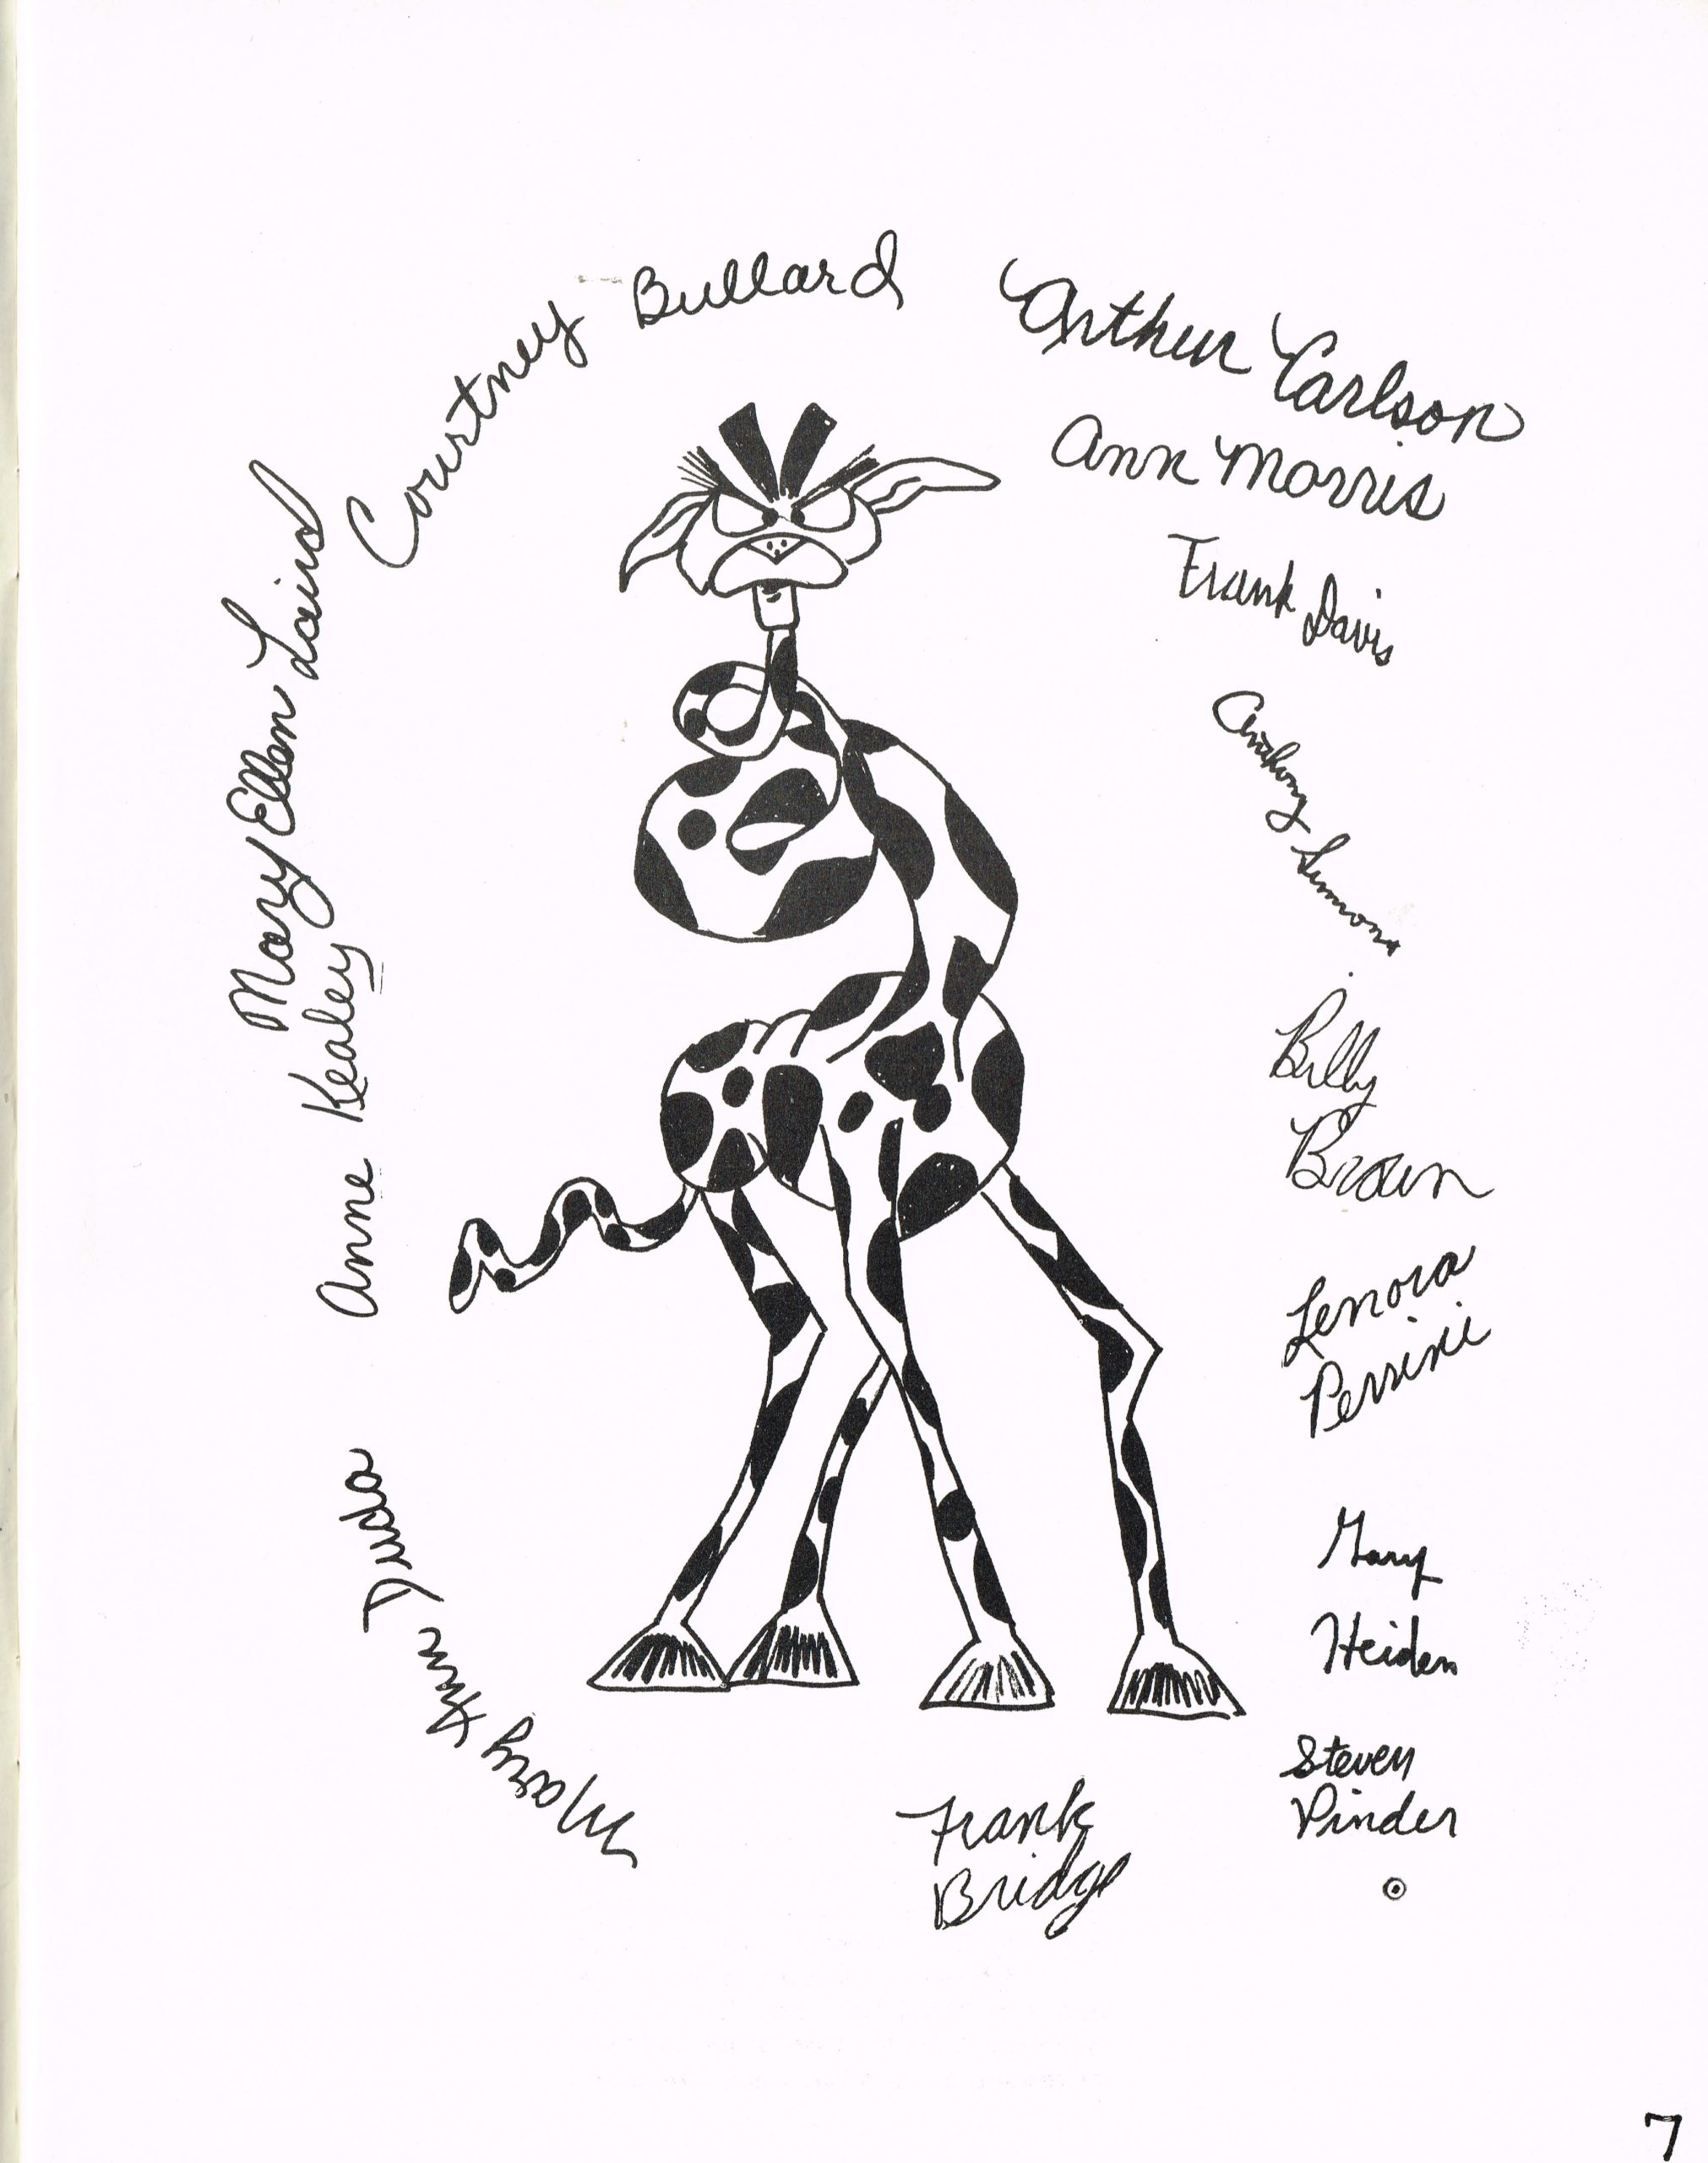 Courtney Bullard
Arthur Carlson
Ann Morris
Frank Davis
Anthony Simmons
Billy
Brown
Lenora
Perrini
Gary
Heiden
Steven
Pinder
Frank
Bridge
Mary Ann Duda
Anne Kealey
Mary Ellen Laird
7